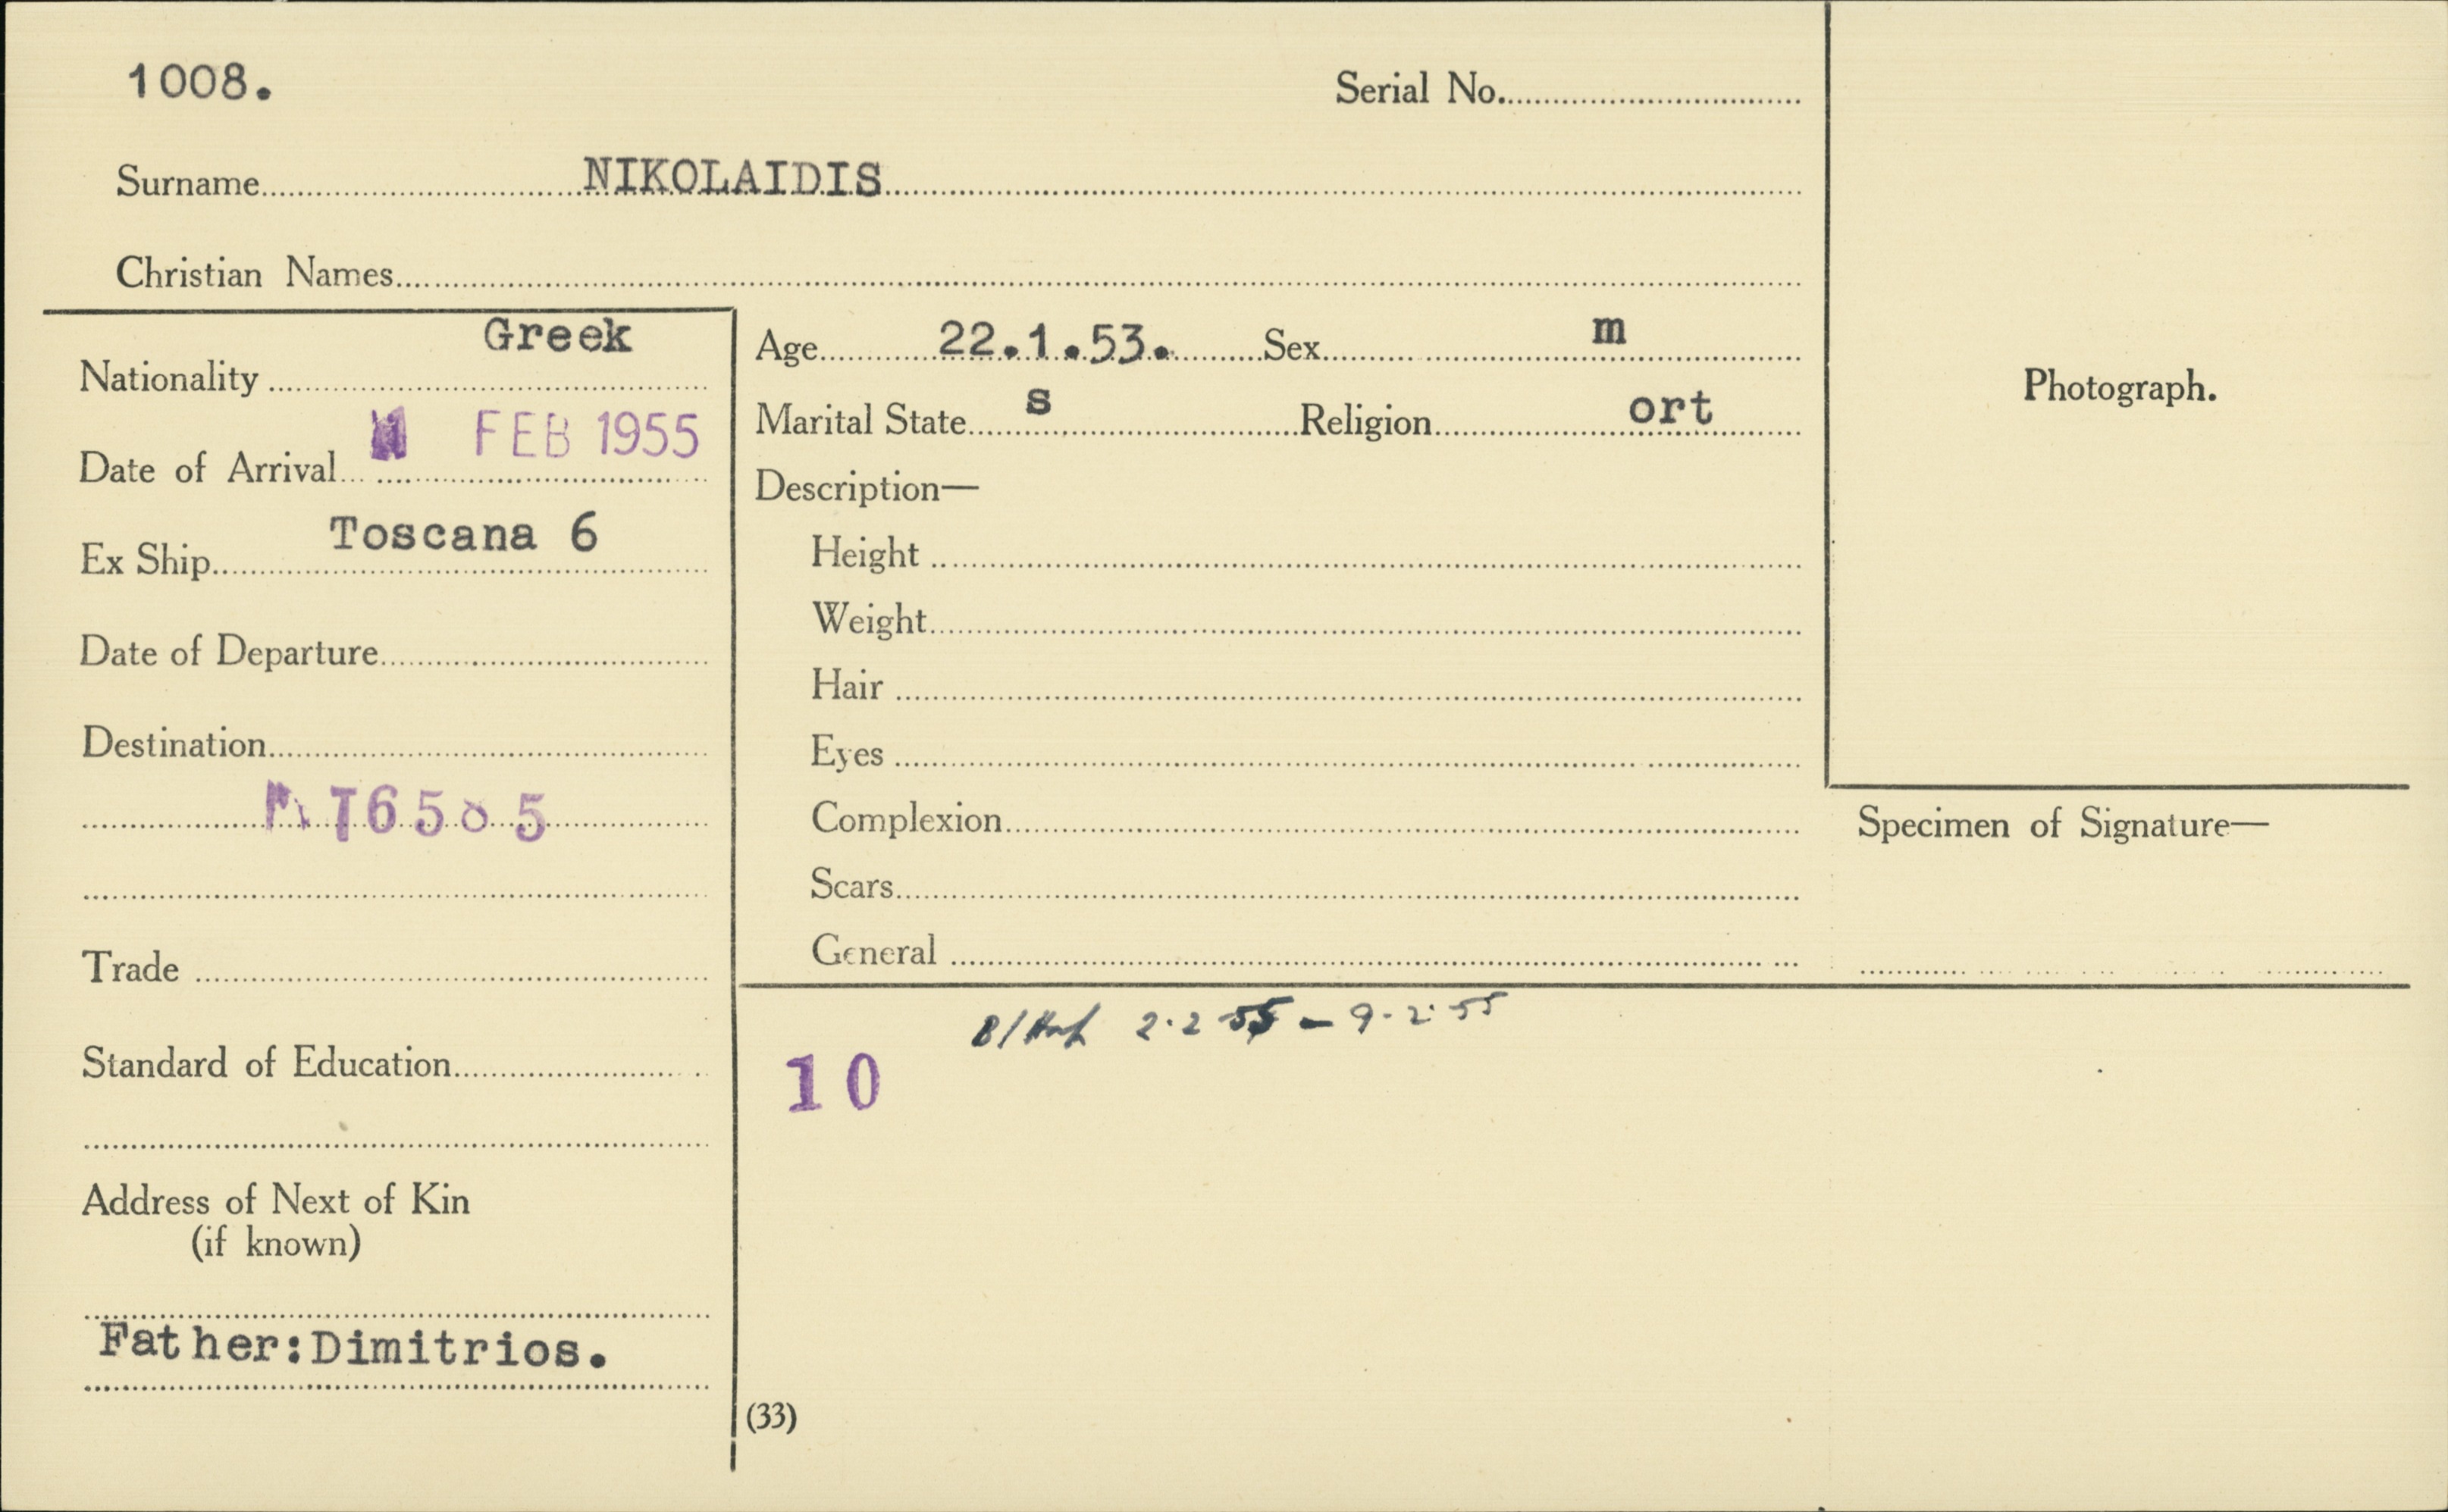 1008.
Serial No.
Surname NIKOLAIDIS
Christian Names
Nationality Greek
Date of Arrival 1 FEB 1955
Ex Ship Toscana 6
Date of Departure
Destination
T6585
Trade
Standard of Education
Address of Next of Kin
(if known)
Father:Dimitrios.
Age 22.1.53. Sex m
Marital State s Religion ort
Description—
Height
Weight
Hair
Eyes
Complexion
Scars
General
Photograph.
Specimen of Signature—
2.2.55 - 9.2.55
10
(33)